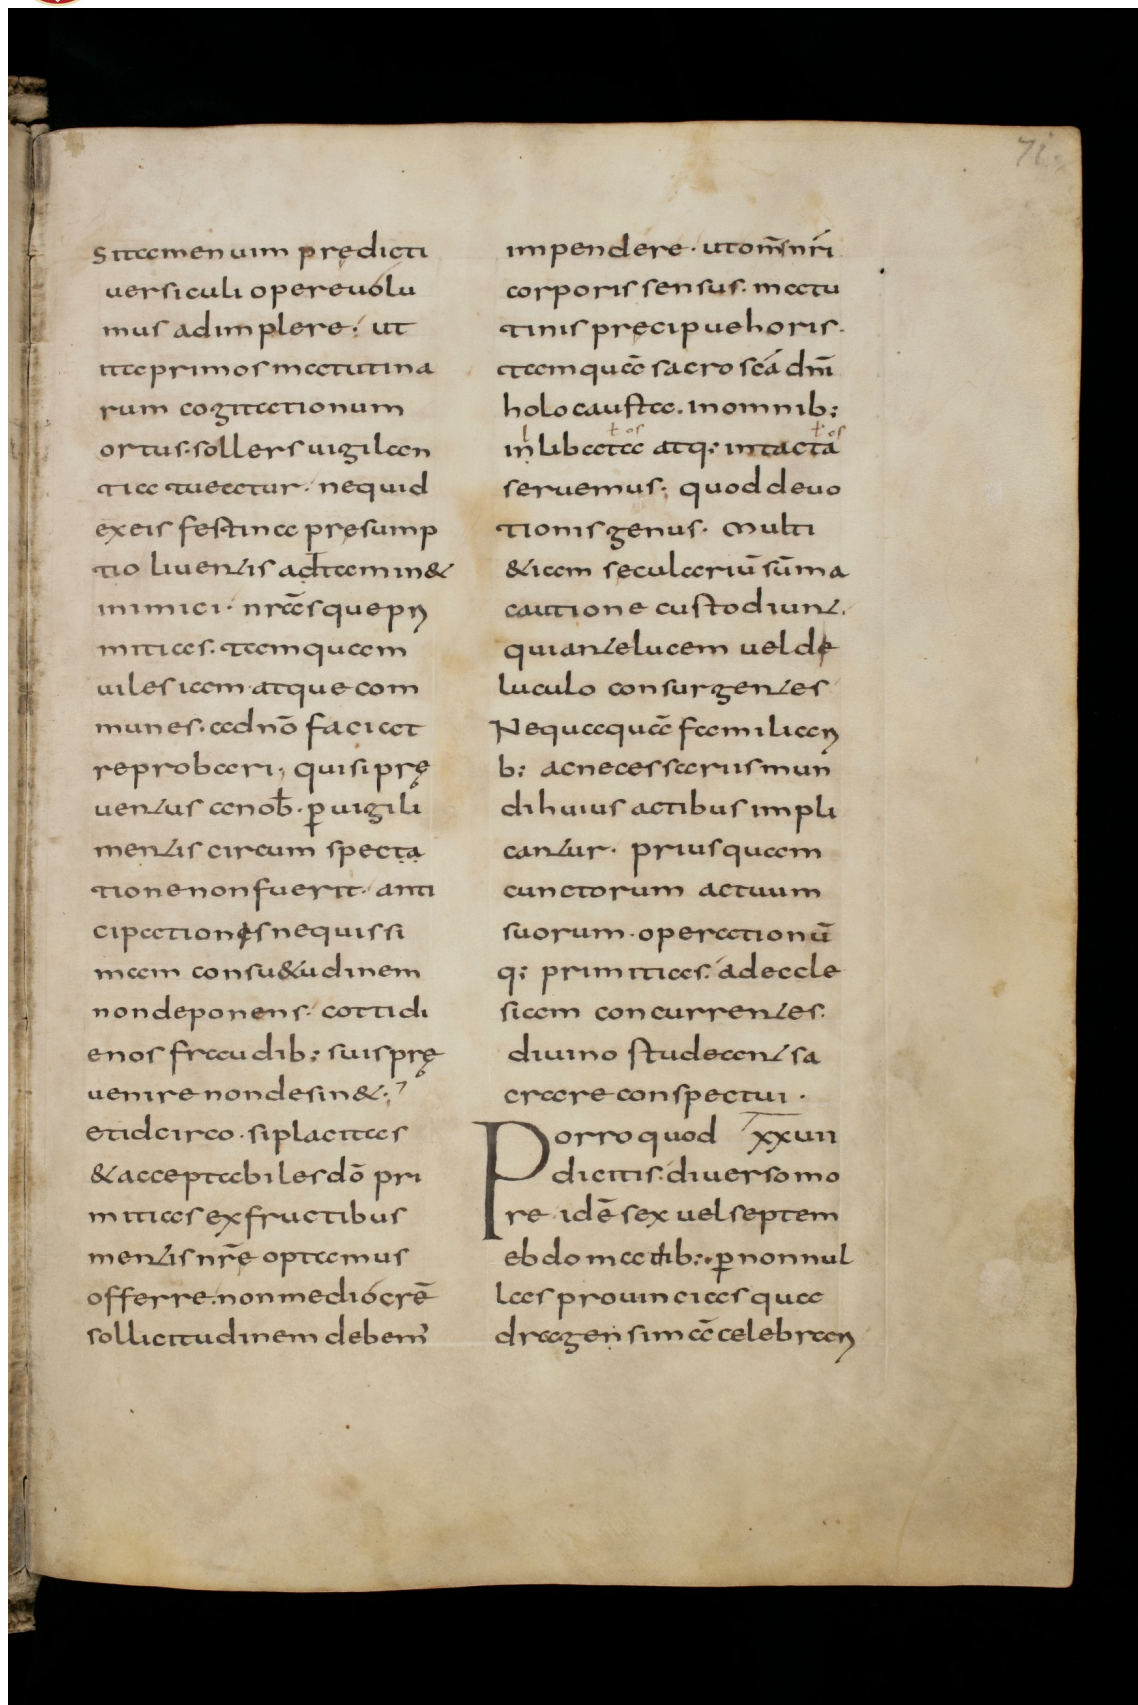 71.
si tamen uim prędicti
uersiculi opere uolu
mus adimplere; ut
ita primos matutina
rum cogitationum
ortus. sollers uigilan
tia tueatur. nequid
ex eis festina presump
tio liuentis adtaminet
inimici. nrās que pri
mitias. tamquam
uiles iam atque com
munes. ad nō faciat
reprobari; qui si prę
uentus a nob̄. ꝑ uigili
mentis circum specta
tione non fuerit. anti
cipationes nequissi
mam consuetudinem
non deponens. cottidi
enos fraudib; suis prę
uenire non desinet;
et idcirco. si placitas
& acceptabiles dō pri
mitias ex fructibus
mentis nrē optamus
offerre. non mediocrē
sollicitudinem debem'
impendere. ut om̄s nr̄i
corporis sensus. matu
tinis pręcipue horis.
tamquā sacro scā dn̄i
holocausta. in omnib;
inlibata atq; intacta
seruemus; quod deuo
tionis genus. multi
&iam seculariū sūma
cautione custodiunt.
qui ante lucem uel de
luculo consurgentes
Nequaquā familiari
b; ac necessariis mun
di huius actibus impli
cantur. prius quam
cunctorum actuum
suorum. operationū
q; primitias. ad eccle
siam concurrentes.
diuino studeant sa
crare conspectui.
Porro quod xxuii
dicitis. diuerso mo
re idē sex uel septem
ebdomadib; ꝑ nonnul
las prouincias qua
dragensimā celebrari